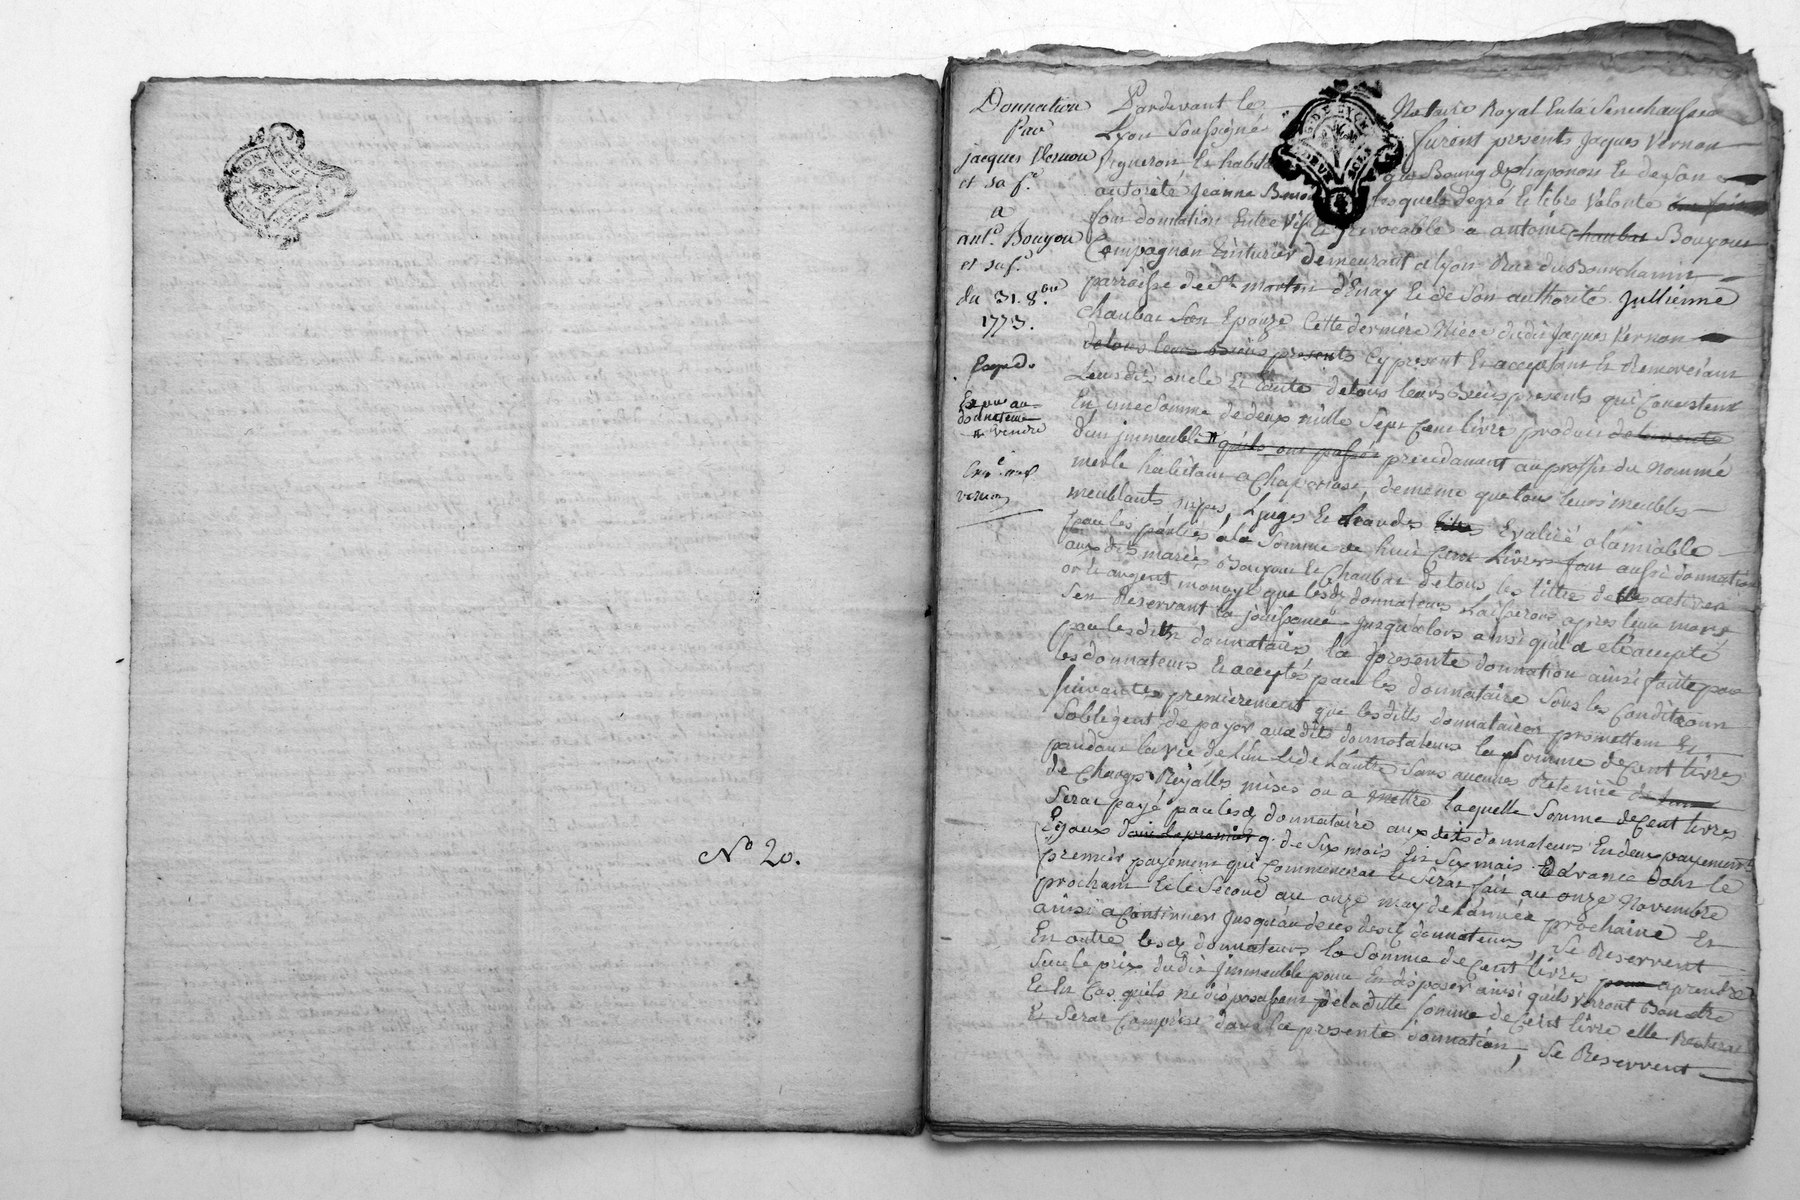 No 20.
Donnation
Par
jacques Vernou
et sa f.e
a
ant.e Bouyou
et sa f.e
du 31. 8.bre
1773.
Expédo
Pardevant le Notaire Royal En la Senechaussee
Lyon Soussigné furent presents Jaques Vernon
Vigneron Et habit Bourg de chaponon Et de son
autorité Jeanne lesquels de gré Et libre Volonté
font donnation Entre Vifs Et irevocable a antoine chaubat Bouyou
Compagnon teinturier demeurant a lyon Rue du Bourchanin
parroisse de St. martin d'Enay Et de Son authorité Jullienne
Chaubat Son Epouze Cette derniére Niéce dudit Jaques Vernon
de tous leurs Biens presents Cy present Et acceptant Et Remerciant
Leursdits oncle Et tante de tous leurs Biens presents qui Consistent
En une Somme de deux mille Sept Cent livre produit de la vente
d'un jmmeuble qu'ils ont passés précédament au proffit du Nommé
merle habitant a Chaponost, de meme que tous leurs meubles
meublants, nipes, Linges Et hardes Evalüé a lamiable
par les parties a la Somme de huit Cent Livres font aussi donnation
aux dits mariés Bouyou Et Chaubat de tous les titre
or Et argent monayé que lesdt donnateurs Laisseront apres leur mort
Sen Reservant la joüissance jusqu'alors ainsi qu'il a eté accepté
par lesdits donnataire la presente donnation ainsi faite par
les donnateurs Et acceptés par les donnataire Sous les Conditions
suivantes premierement que lesditts donnataires promettent Et
Soblegent de payer auxdits donnatateurs la Somme de Cent livres
pandant la vie de L'un Et de L'autre Sans aucunes Retenüe
de Charges Royalles mises ou a mettre laquelle Somme de Cent livres
Serat payé par lesdt donnataire aux dits donnateurs En deux payements
Egaux de Six mois En Six mois d'avance dont le
premier payement qui Commencerat Et Serat fait au onze Novembre
prochain Et le Second au onze may de L'année prochaine Et
ainsi a Continuer jusqu'au deces desdt donnateurs, Se Reservent
En outre lesdt donnateurs la Somme de Cent livres a prendre
Sur le prix dudit jmmeuble pour En disposer ainsi quils verront Bon etre
Et En Cas quils ne disposassent de laditte Somme de Cent livre elle Resterat
Et Serat Comprise dans la presente donnation, Se Reservent